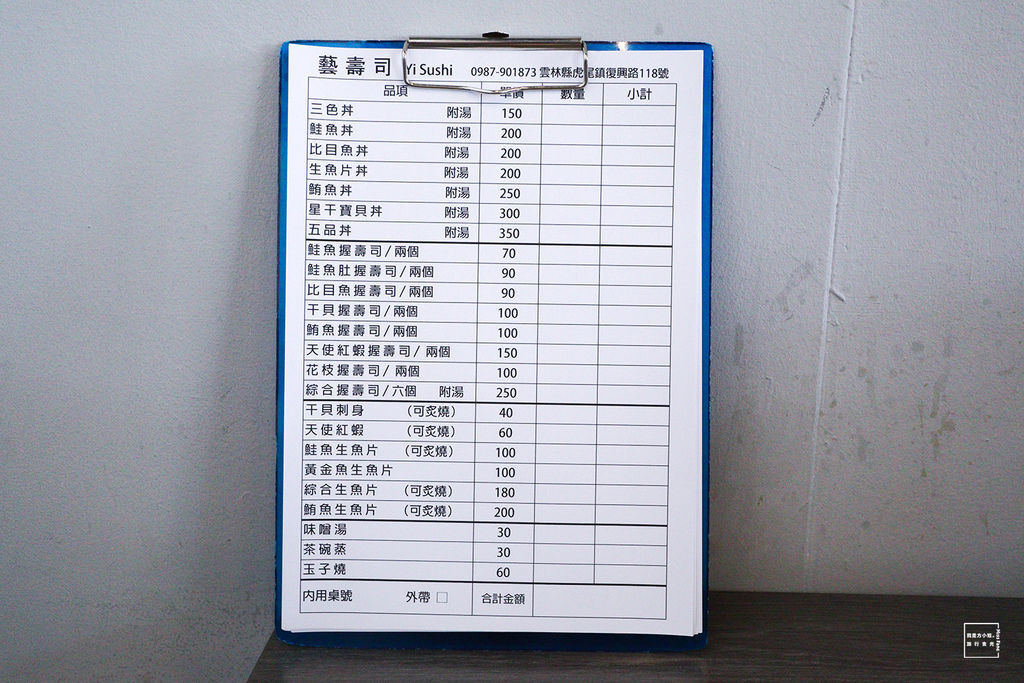 藝壽司 Yi Sushi 0987-901873 雲林縣虎尾鎮復興路118號
品項 單價 數量 小計
三色丼 附湯 150
鮭魚丼 附湯 200
比目魚丼 附湯 200
生魚片丼 附湯 200
鮪魚丼 附湯 250
星干寶貝丼 附湯 300
五品丼 附湯 350
鮭魚握壽司/兩個 70
鮭魚肚握壽司/兩個 90
比目魚握壽司/兩個 90
干貝握壽司/兩個 100
鮪魚握壽司/兩個 100
天使紅蝦握壽司/ 兩個 150
花枝握壽司/ 兩個 100
綜合握壽司/六個 附湯 250
干貝刺身 (可炙燒) 40
天使紅蝦 (可炙燒) 60
鮭魚生魚片 (可炙燒) 100
黃金魚生魚片 100
綜合生魚片 (可炙燒) 180
鮪魚生魚片 (可炙燒) 200
味噌湯 30
茶碗蒸 30
玉子燒 60
內用桌號 外帶 □ 合計金額
我是方小妞。
旅行食光
Miss Fang